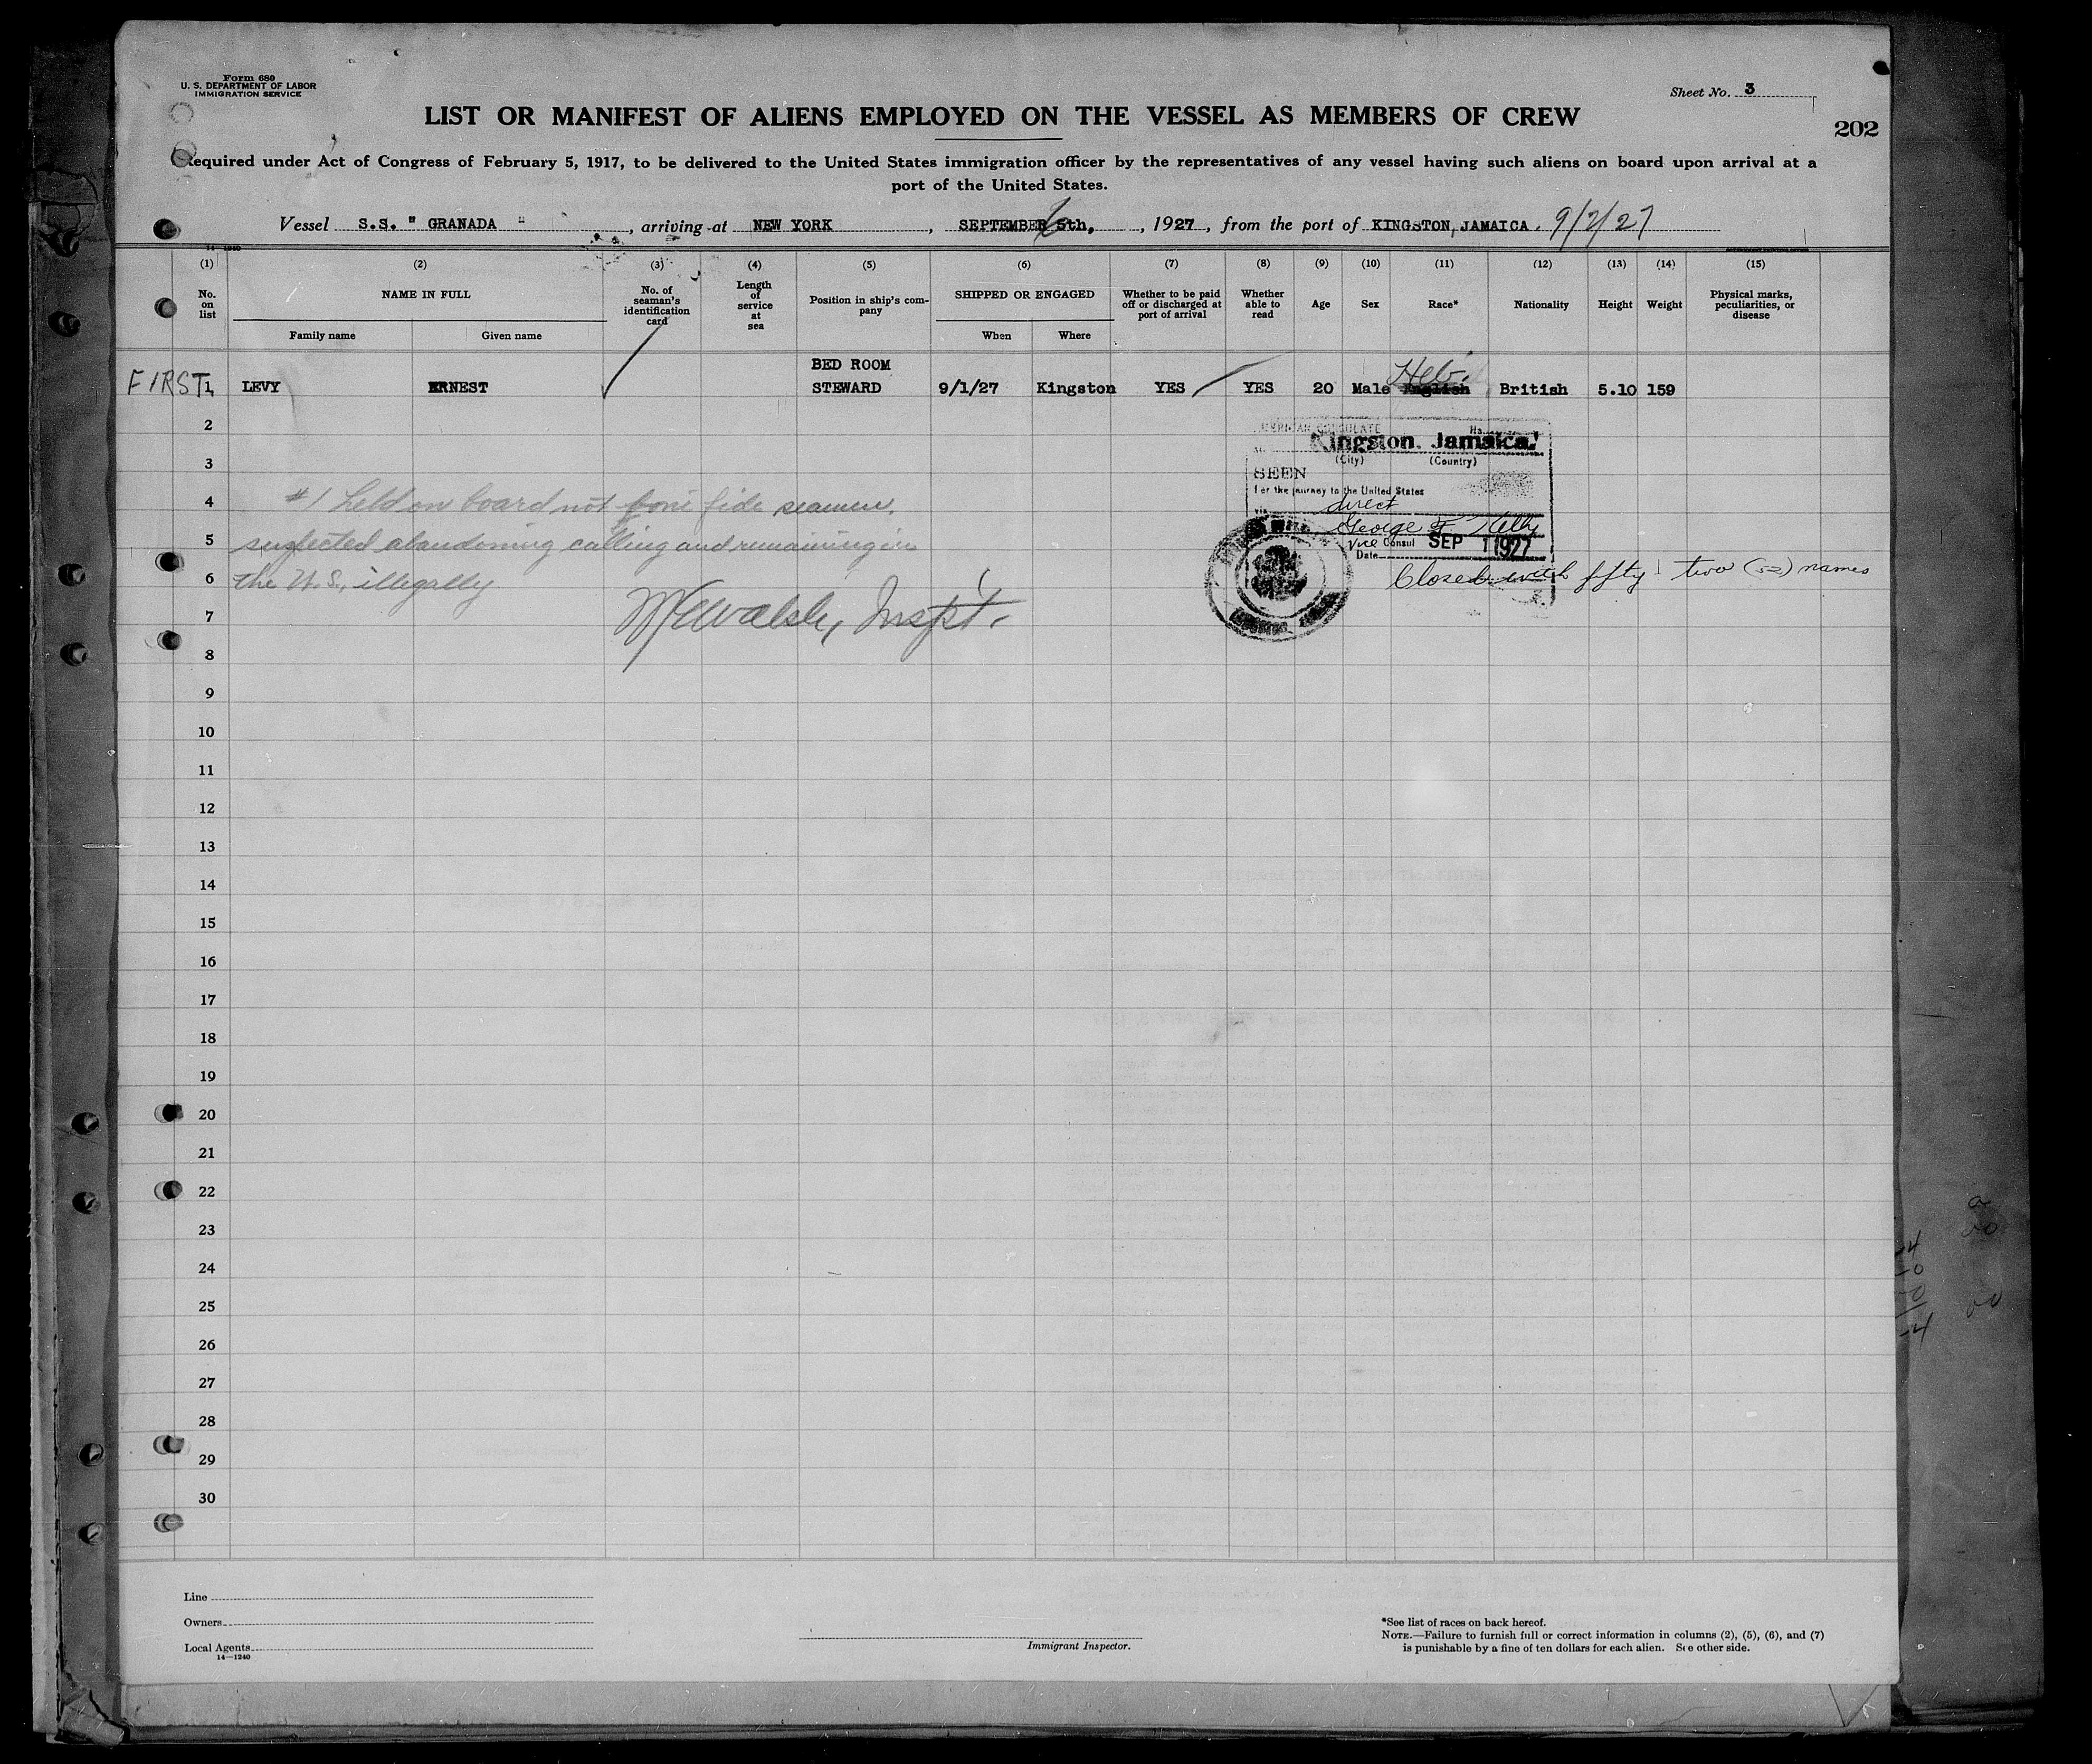 Form 680
U. S. DEPARTMENT OF LABOR
IMMIGRATION SERVICE
Sheet No. 3
LIST OR MANIFEST OF ALIENS EMPLOYED ON THE VESSEL AS MEMBERS OF CREW
202
Required under Act of Congress of February 5, 1917, to be delivered to the United States immigration officer by the representatives of any vessel having such aliens on board upon arrival at a
port of the United States.
Vessel S.S. " GRANADA ", arriving at NEW YORK, SEPTEMBER 5th, 6, 1927, from the port of KINGSTON, JAMAICA. 9/2/27
(1) (2) (3) (4) (5) (6) (7) (8) (9) (10) (11) (12) (13) (14) (15)
No. on list
NAME IN FULL
Family name Given name
No. of seaman's identification card
Length of service at sea
Position in ship's company
SHIPPED OR ENGAGED
When Where
Whether to be paid off or discharged at port of arrival
Whether able to read
Age
Sex
Race*
Nationality
Height
Weight
Physical marks, peculiarities, or disease
BED ROOM Heb.
FIRST 1 LEVY ERNEST STEWARD 9/1/27 Kingston YES YES 20 Male English British 5.10 159
2
3
4
5
6
7
8
9
10
11
12
13
14
15
16
17
18
19
20
21
22
23
24
25
26
27
28
29
30
AMERICAN CONSULATE
Kingston, Jamaica
(City) (Country)
SEEN
For the journey to the United States
via direct
George F. Kelly
Vice Consul SEP 1 1927
Date
Closed with fifty-two (52) names
#1 held on board not bona fide seaman.
suspected abandoning calling and remaining in
the U.S. illegally
Walsh, Inspt.
Line
Owners
Local Agents
14—1240
Immigrant Inspector.
*See list of races on back hereof.
NOTE.—Failure to furnish full or correct information in columns (2), (5), (6), and (7)
is punishable by a fine of ten dollars for each alien. See other side.